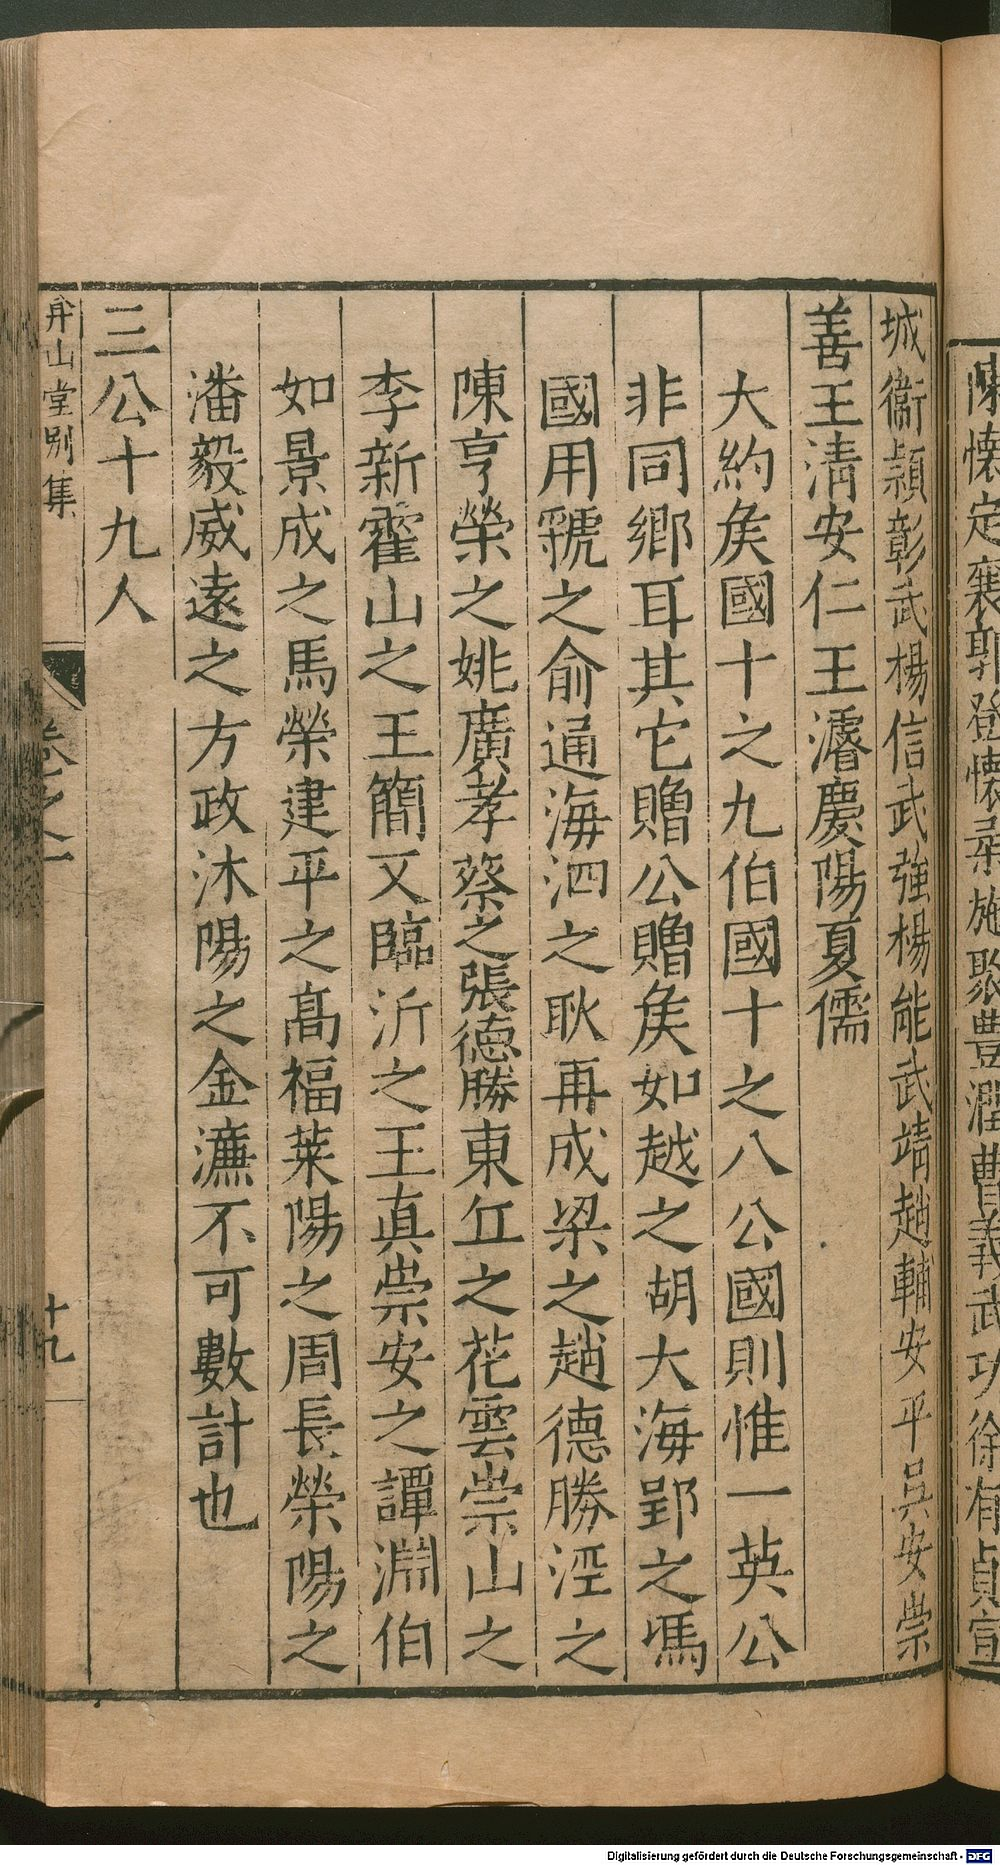 陳懷定襄郭登懷柔施聚豐潤曹義武功徐有貞宣
城衞頴彰武楊信武強楊能武靖趙輔安平吳安崇
善王淸安仁王濬慶陽夏儒
大約矦國十之九伯國十之八公國則惟一英公
非同鄉耳其它贈公贈矦如越之胡大海郢之馮
國用虢之俞通海泗之耿再成梁之趙德勝涇之
陳亨榮之姚廣孝蔡之張德勝東丘之花雲崇山之
李新霍山之王簡又臨沂之王真崇安之譚淵伯
如景成之馬榮建平之高福萊陽之周長榮陽之
潘毅威遠之方政沐陽之金濂不可數計也
三公十九人
弇山堂別集
卷之
十九
Digitalisierung gefördert durch die Deutsche Forschungsgemeinschaft - DFG